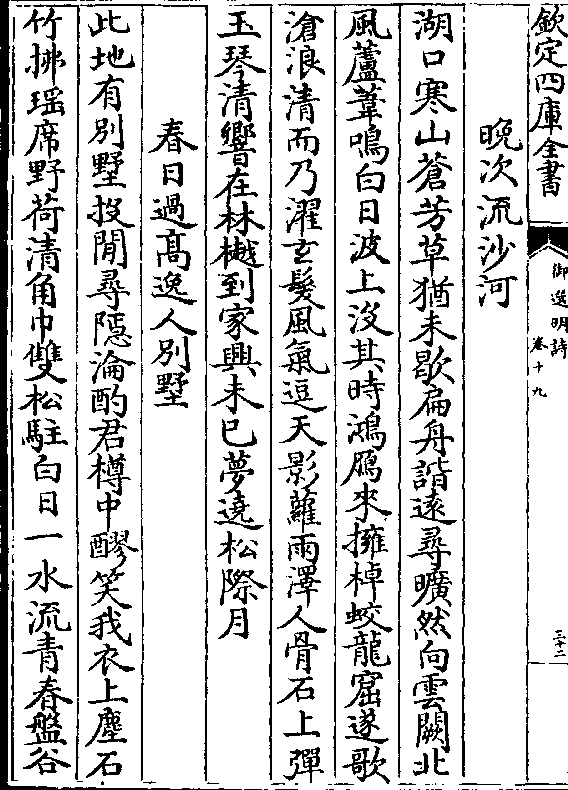 欽定四庫全書
御選明詩
卷十九
三十二
晚次流沙河
湖口寒山蒼芳草猶未歇扁舟諧遠尋曠然向雲闕北
風蘆葦鳴白日波上沒其時鴻鴈來擁棹蛟龍窟遂歌
滄浪清而乃濯玄髮風氣逗天影蘿雨澤人骨石上彈
玉琴清響在林樾到家興未已夢遶松際月
春日過髙逸人別墅
此地有別墅投閒尋隱淪酌君樽中醪笑我衣上塵石
竹拂瑶席野荷清角巾雙松駐白日一水流青春盤谷